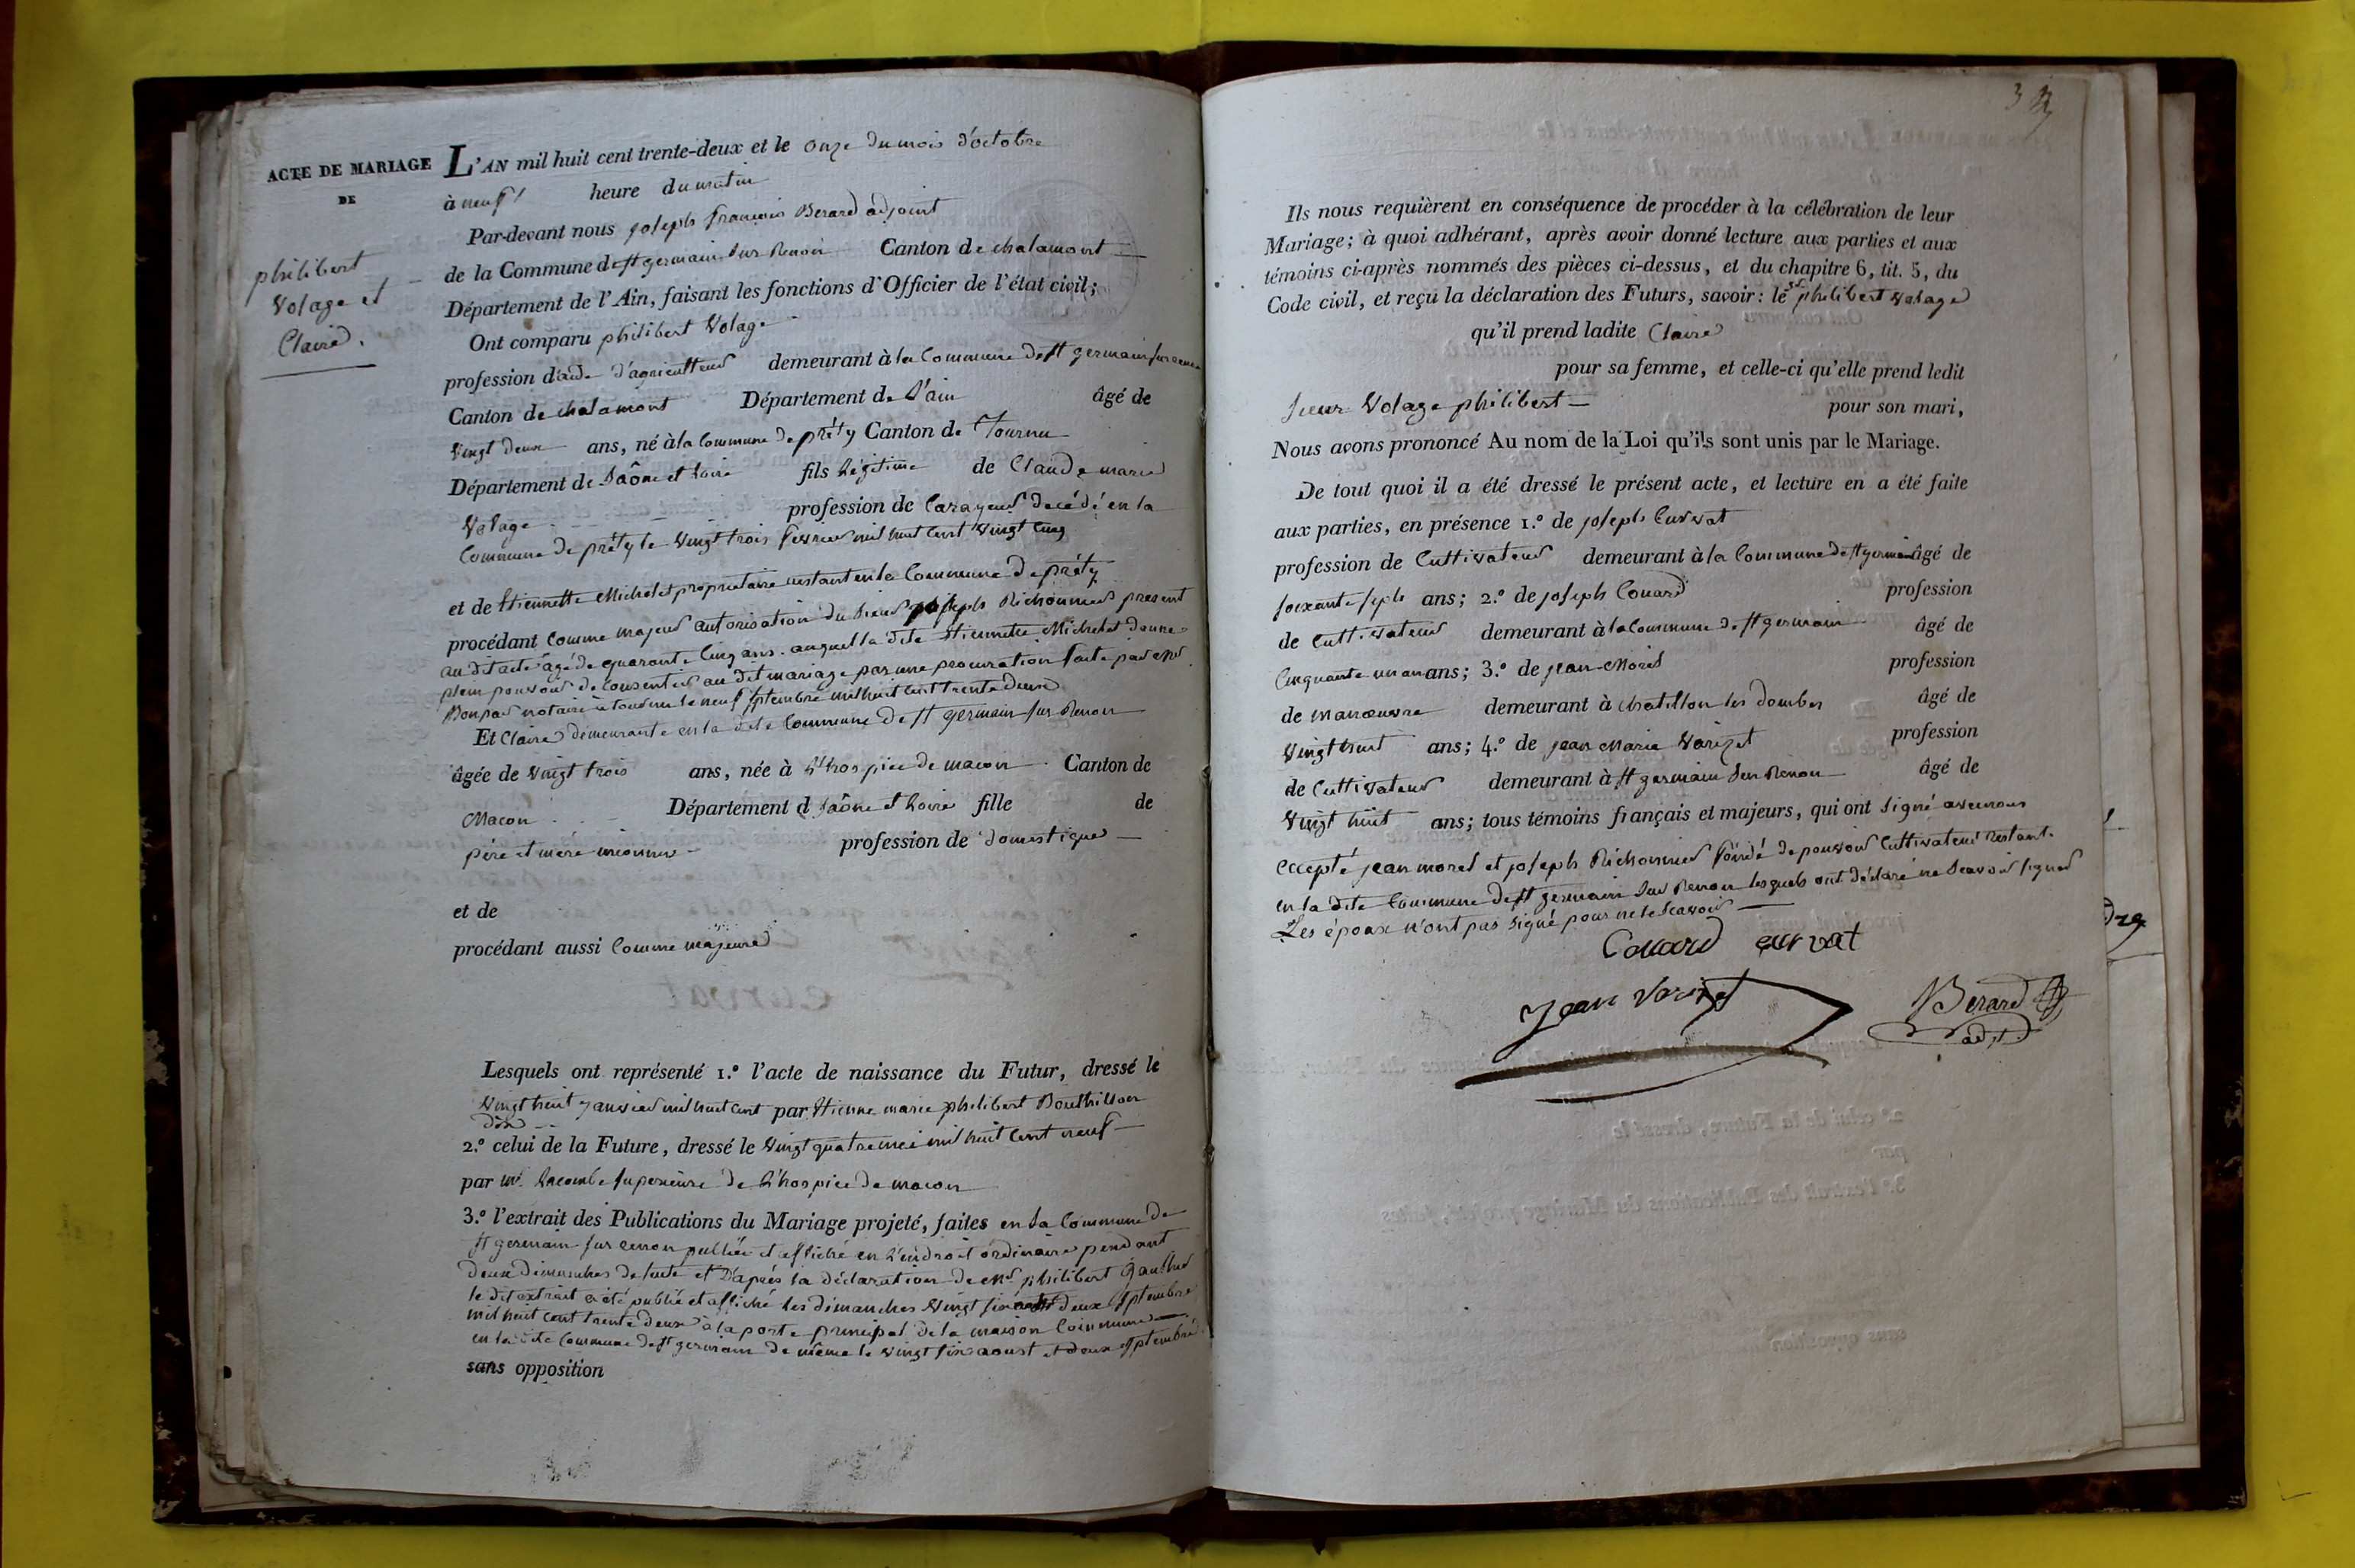 ACTE DE MARIAGE
DE
philibert
Volage et
Claire.
L'AN mil huit cent trente-deux et le onze du mois d'octobre
à neuf heure du matin
Par-devant nous joseph françois Berard adjoint
de la Commune de st germain sur Renon Canton de chalamont
Département de l'Ain, faisant les fonctions d'Officier de l'état civil;
Ont comparu philibert Volage
profession d'aide d'agriculteur demeurant à la Commune de st germain sur renon
Canton de chalamont Département de L'ain âgé de
Vingt deux ans, né à la Commune de préty Canton de Tournu
Département de Saône et Loire fils Légitime de Claude marie
Volage profession de decédé en la
Commune de préty le Vingt trois fevrier mil huit cent Vingt Cinq
et de Etiennette Michelet propriétaire restant en la Commune de préty
procédant Comme majeur autorisation du Sieur joseph Richonnier present
au dit acte âgé de quarante Cinq ans. auquel la dite Etiennette Michelet donne
plein pouvoir de Consentir au dit mariage par une procuration faite par
notaire a tournu le neuf septembre mil huit cent trente deux
Et Claire demeurante en la dite Commune de st germain sur Renon
âgée de Vingt trois ans, née à L'hospice de macon Canton de
Macon Département d Saône et Loire fille de
père et mère inconnus profession de domestique
et de
procédant aussi Comme majeure
Lesquels ont représenté 1.º l'acte de naissance du Futur, dressé le
Vingt huit janvier mil huit cent par Etienne marie philibert
dix
2.º celui de la Future, dressé le Vingt quatre mai mil huit Cent neuf
par me Lacombe superieure de L'hospice de macon
3.º l'extrait des Publications du Mariage projeté, faites en La Commune de
st germain sur renon publiée et affiché en L'endroit ordinaire pendant
deux dimanches de suite et D'après la déclaration de Mr philibert Gauthier
le dit extrait a été publié et affiché les dimanches Vingt six deux septembre
mil huit cent trente deux à la porte principal de la maison Commune
en la dite Commune de st germain de même le vingt six aoust et deux septembre
sans opposition
3
Ils nous requièrent en conséquence de procéder à la célébration de leur
Mariage; à quoi adhérant, après avoir donné lecture aux parties et aux
témoins ci-après nommés des pièces ci-dessus, et du chapitre 6, tit. 5, du
Code civil, et reçu la déclaration des Futurs, savoir: le sr philibert Volage
qu'il prend ladite Claire
pour sa femme, et celle-ci qu'elle prend ledit
sieur Volage philibert pour son mari,
Nous avons prononcé Au nom de la Loi qu'ils sont unis par le Mariage.
De tout quoi il a été dressé le présent acte, et lecture en a été faite
aux parties, en présence 1.º de joseph Curvat
profession de Cultivateur demeurant à la Commune de st germain âgé de
soixante sept ans; 2.º de joseph Couard profession
de Cultivateur demeurant à la Commune de st germain âgé de
Cinquante un an ans; 3.º de jean Morel profession
de manœuvre demeurant à chatillon les dombes âgé de
Vingt huit ans; 4.º de jean Marie Varizet profession
de Cultivateur demeurant à st germain sur Renon âgé de
Vingt huit ans; tous témoins français et majeurs, qui ont signé avec nous
excepté jean morel et joseph Richonnier fondé de pouvoir Cultivateur restant
en la dite Commune de st germain sur Renon lesquels ont déclaré ne Scavoir signer
Les époux n'ont pas signé pour ne le Scavoir
Couard curvat
Jean Varizet
Berard
adjt